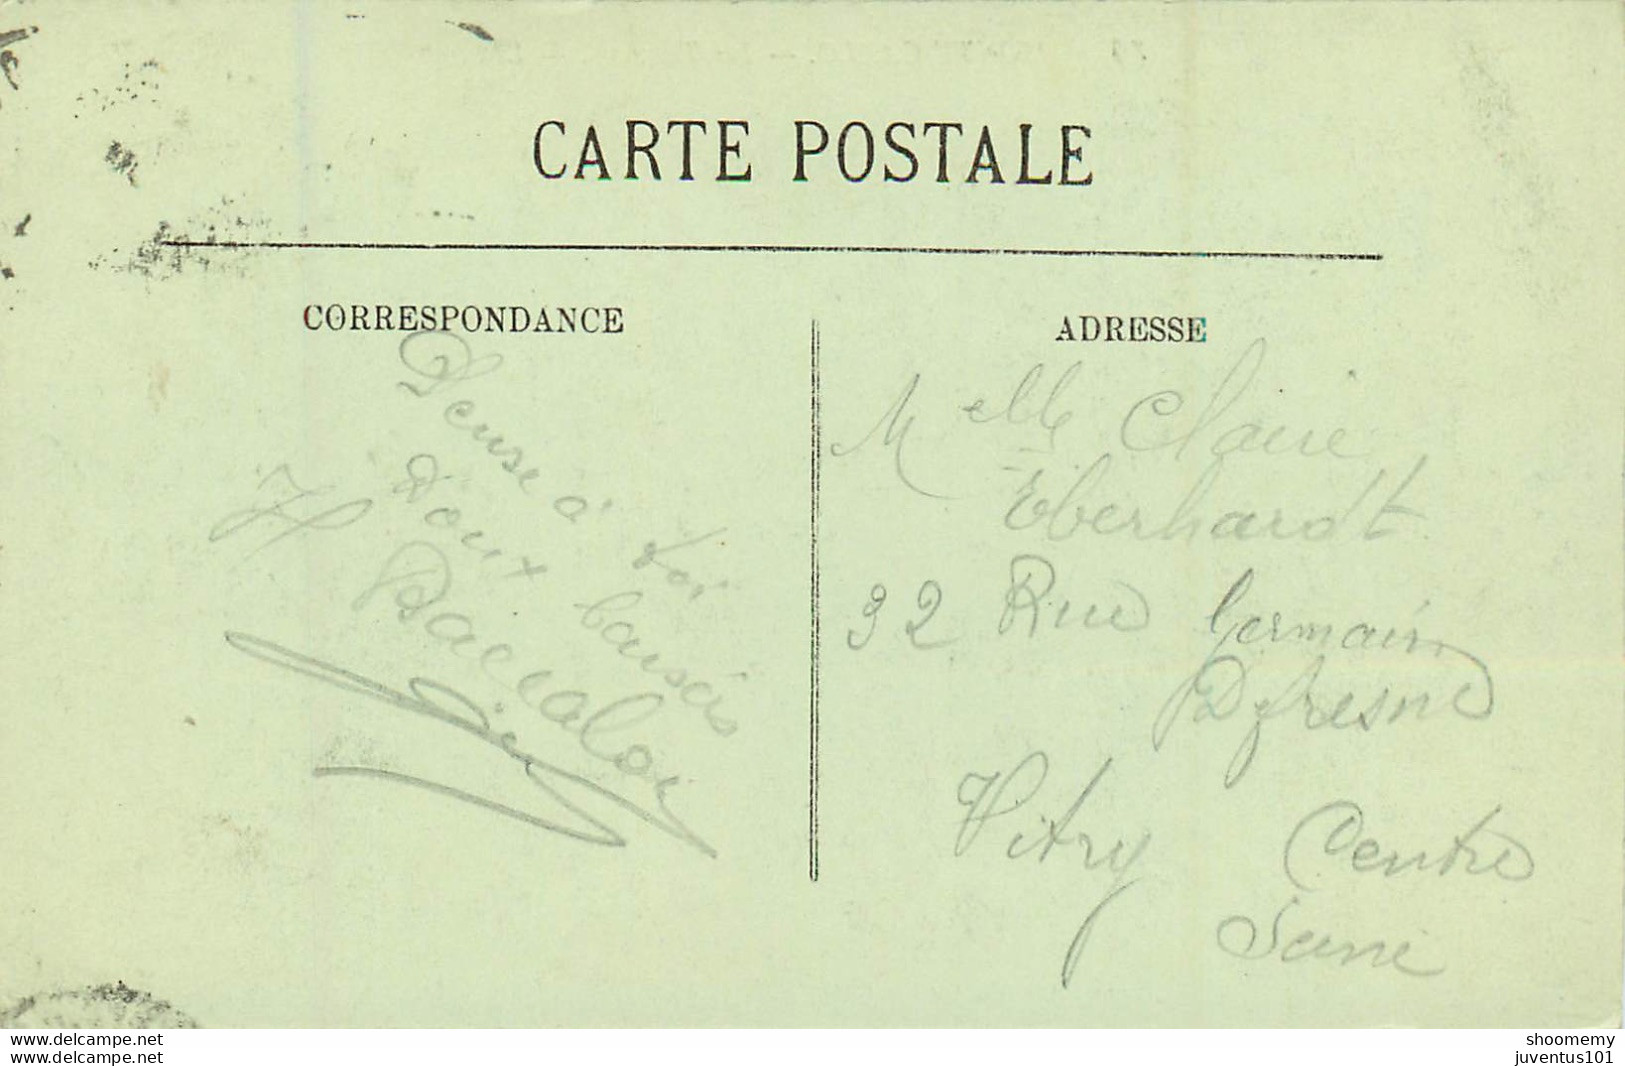 CARTE POSTALE
CORRESPONDANCE
Pense à toi
Doux baisés
H Baccaloi
ADRESSE
Melle Claire
Eberhardt
32 Rue Germain
Dfresne
Vitry Centre
Seine
www.delcampe.net
Baccara01
shoomemy
juventus101